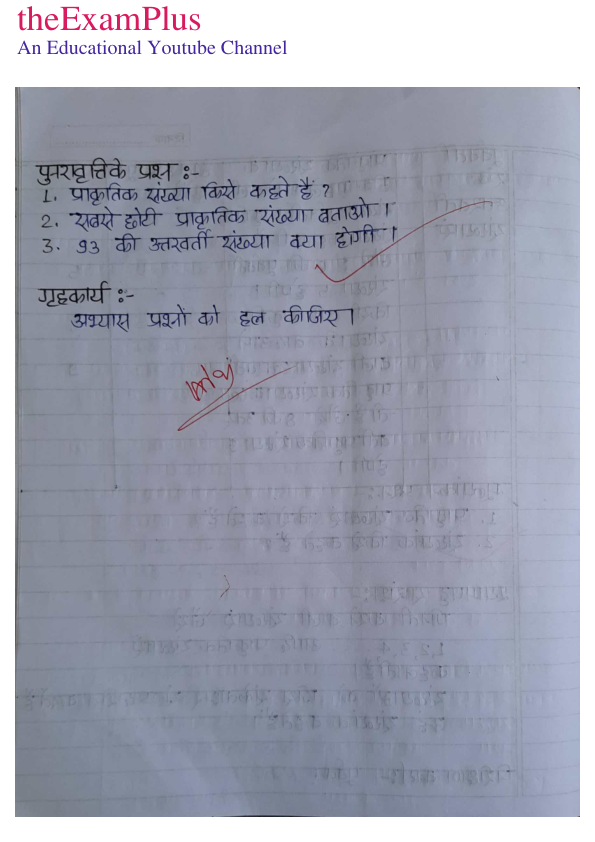 theExamPlus
An Educational Youtube Channel
पुनरावृत्तिके प्रश्न :-
1. प्राकृतिक संख्या किसे कहते हैं ?
2. सबसे छोटी प्राकृतिक संख्या बताओ ।
3. 93 की उत्तरवर्ती संख्या क्या होगी ।
गृहकार्य :-
अभ्यास प्रश्नों को हल कीजिए ।